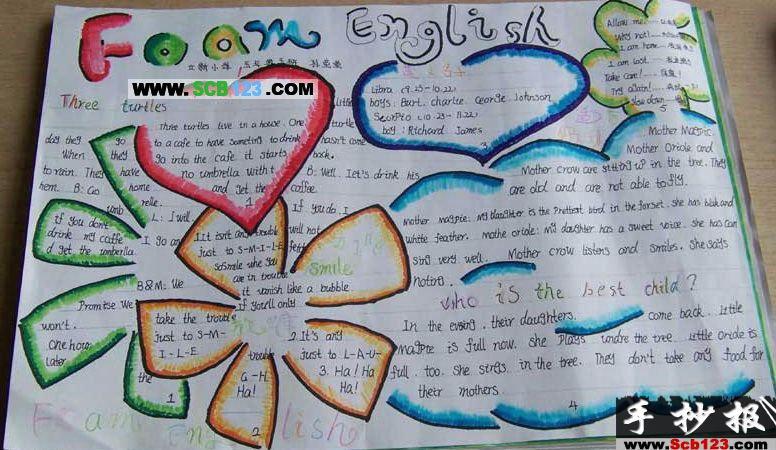 Foam English
www.SCB123.com
Three turtles
Three turtles live in a house. One
to a cafe to have someting to drink
go into the cafe it starts
no umbrella with t
and get the
1
little
turtle
hasn't come
back.
B: Well. Let's drink his
coffee.
day they go
When they
to rain. They have
hem. B: Go home
umb relle.
L: I will
If you don't
drink my caffe
d get the umberlla.
I go an
B&M: We
Promise We
won't.
One hour
later
the
1
If you do. I
will not
1It isnt any trouble
just to S-M-I-L-E
So smile whe you
are in trouble
it vanish like a bubble.
If you'll only
Smile
take the trouble
just to S-M-
I-L-E
trouble
G-H
Ha!
2
2. It's any
just to L-A-U-
3. Ha! Ha
Ha!
Libra (9.23-10.22)
boys: Bart. charlie. George. Johnson
Scorpto (10.23-11.22)
boy: Richard James
3
Allow me.
Why not!
I am home.
I am lost.
Take care!
Try again!
Slow down
5
Mother Magpie.
Mother Oriole and
Mother crow are sitting up in the tree. They
are old and are not able to fly.
Mother magpie: my daughter is the Prettest bird in the forset. she has bluk and
white feather. mothe oriole: My daughter has a sweet voice. she has can
sing very well. Mother crow listens and smiles. She says
noting.
who is the best child?
In the evsing. their daughters. come back. Little
magpie is full now. she Plays undre the tree. Little Oriole is
full. too. She sings. in the tree. They don't take any food for
their mothers.
4
Foam English
手抄报
www.Scb123.com